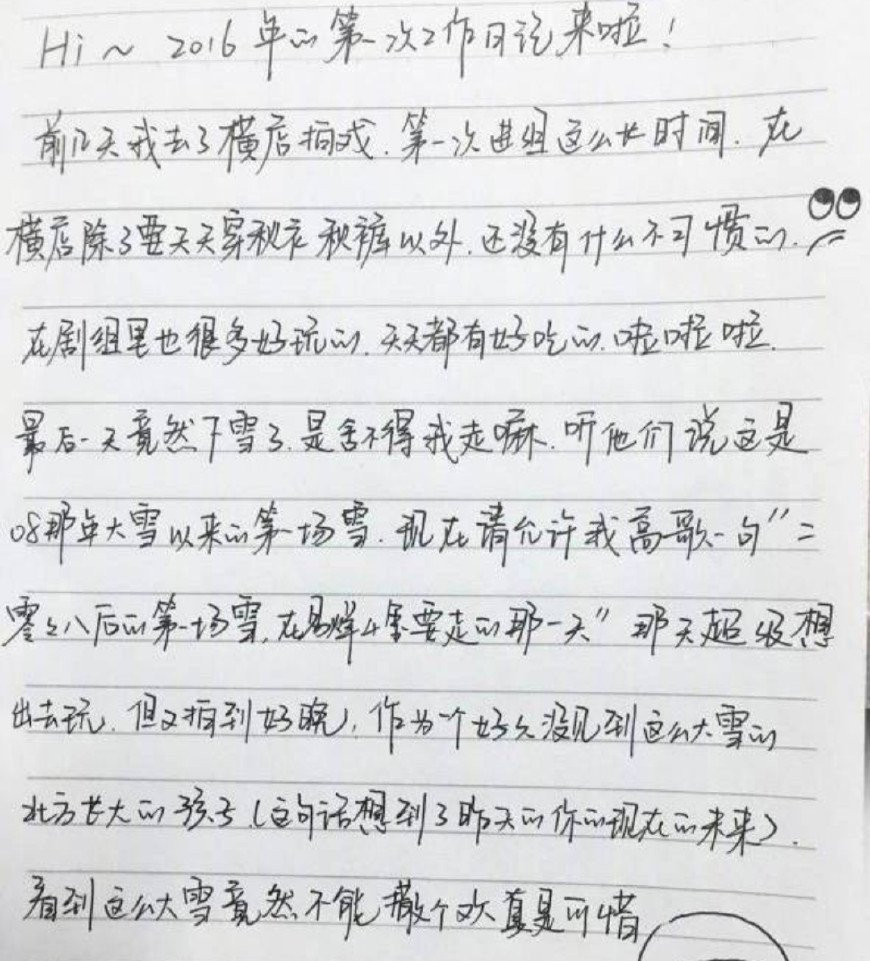 Hi～ 2016年的第一次工作日记来啦！
前几天我去了横店拍戏.第一次进组这么长时间.在
横店除了要天天穿秋衣秋裤以外.还没有什么不习惯的.
在剧组里也很多好玩的.天天都有好吃的.啦啦啦.
最后一天竟然下雪了.是舍不得我走嘛.听他们说这是
08那年大雪以来的第一场雪.现在请允许我高歌一句"二
零零八后的第一场雪,在易烊千玺要走的那一天"那天超级想
出去玩.但又拍到好晚,作为一个好久没见到这么大雪的
北方长大的孩子(这句话想到了昨天的你的现在的未来).
看到这么大雪竟然不能撒个欢真是可惜